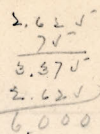 2.625
75
3.375
2.625
6000